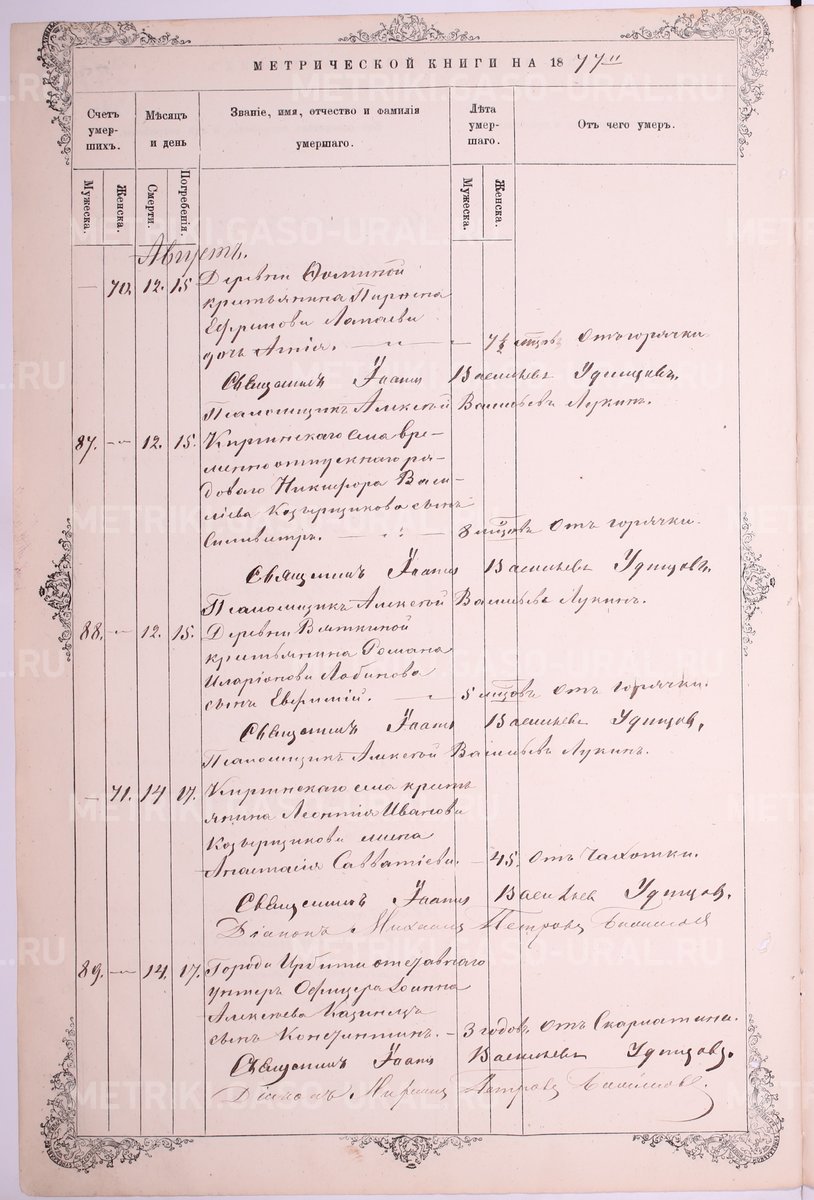 МЕТРИЧЕСКОЙ КНИГИ НА 1877
Счетъ умер- шихъ.
Мѣсяцъ и день
Званіе, имя, отчество и фамилія умершаго.
Лѣта умер- шаго.
Отъ чего умеръ.
Мужеска.
Женска.
Смерти.
Погребенія.
Мужеска.
Женска.
Августъ.
70. 12. 15 Деревни Ѳоминой
крестьянина
дочь 7½ мѣсцвъ Отъ горячки
Священникъ Іоаннъ Васильевъ Удинцовъ.
Псаломщикъ Алексѣй Васильевъ Лукинъ.
87. 12. 15. Киргинскаго села вре-
менно отпускнаго ря-
доваго Никифора Васи-
лiева Козырщикова сынъ
Сильвестръ. 8 мѣсцвъ Отъ горячки.
Священникъ Іоаннъ Васильевъ Удинцовъ.
Псаломщикъ Алексѣй Васильевъ Лукинъ.
88. 12. 15. Деревни Вяткиной
крестьянина Романа
Иларіонова Лобанова
сынъ Евфимій. 5 мѣсцовъ Отъ горячки.
Священникъ Іоаннъ Васильевъ Удинцов,
Псаломщикъ Алексѣй Васильевъ Лукинъ.
71. 14 17. Киргинскаго села кресть
янина Леонтія Иванова
Козырщикова жена
Анастасія Савватіева. 45. Отъ Чахотки.
Священникъ Іоаннъ Васильев Удинцов,
Діаконъ Михаилъ Петровъ
89. 14. 17. Города Ирбити отставнаго
унтеръ Офицера Іоанна
Алексѣева
сынъ Константинъ. 3 годовъ Отъ Скарлатины.
Священникъ Іоаннъ Васильевъ Удинцовъ.
Діаконъ Михаилъ Петровъ
METRIKI.GASO-URAL.RU